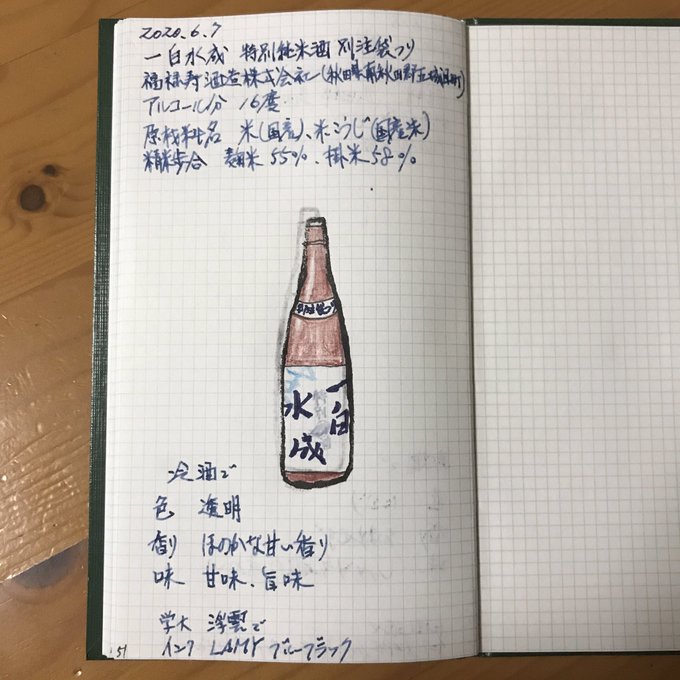 2020.6.7
一白水成 特別純米酒 別注袋つり
福禄寿酒造株式会社(秋田県南秋田郡五城目町)
アルコール分 16度
原材料名 米(国産)、米こうじ(国産米)
精米歩合 麹米55%、掛米58%
一白
水成
冷酒で
色 透明
香り ほのかな甘い香り
味 甘味、旨味
浮雲で
インク LAMY ブルーブラック
51